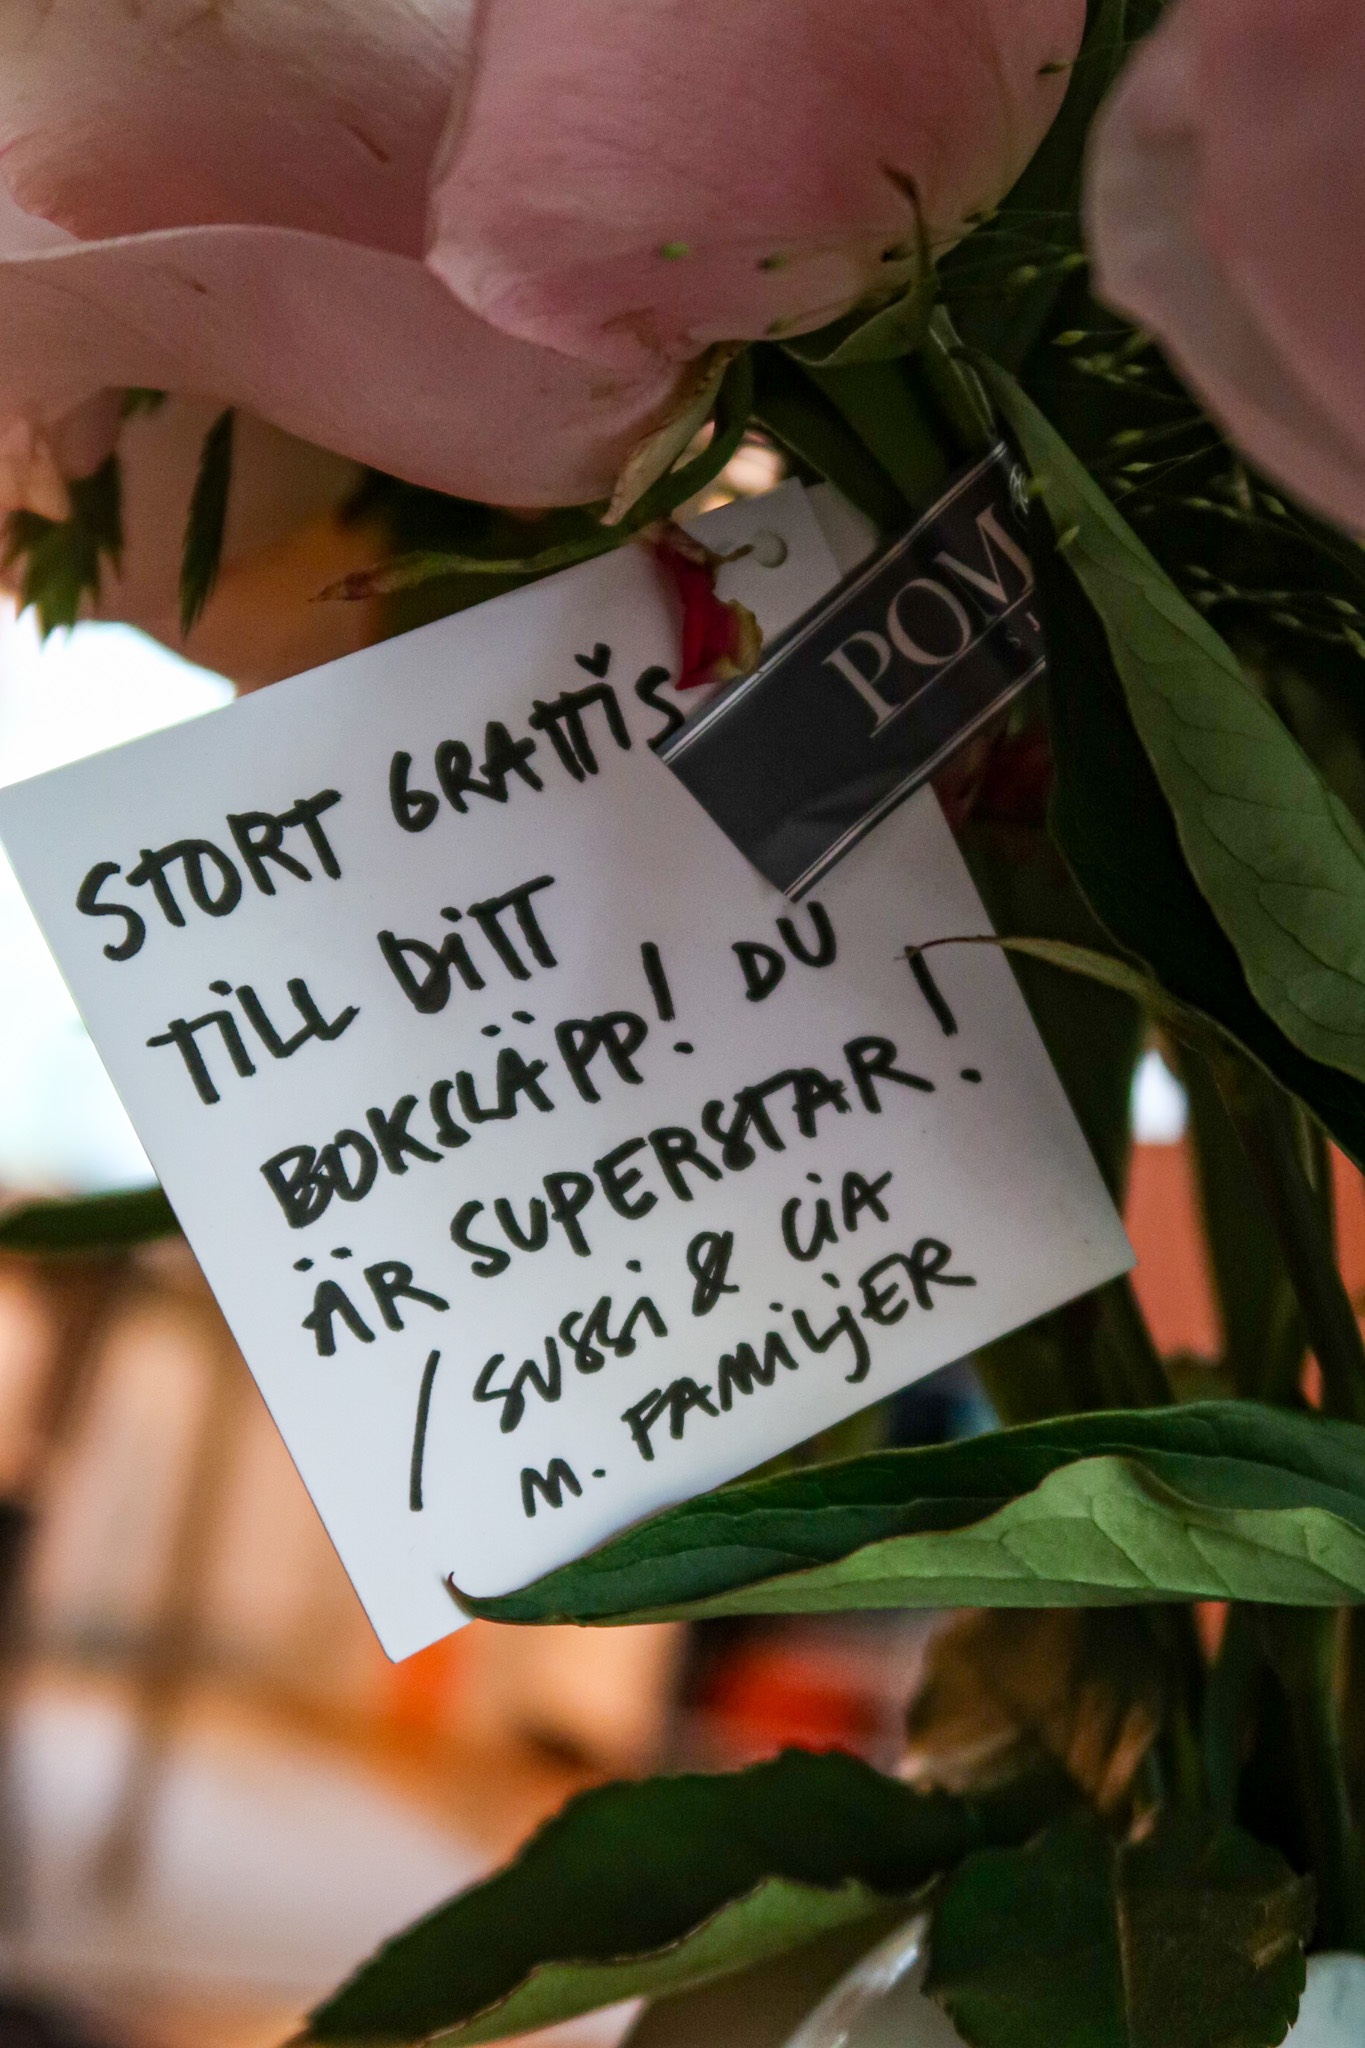 STORT GRATTIS
TILL DITT
BOKSLÄPP! DU
ÄR SUPERSTAR!
/ SUSSI & CIA
M. FAMILJER
POM